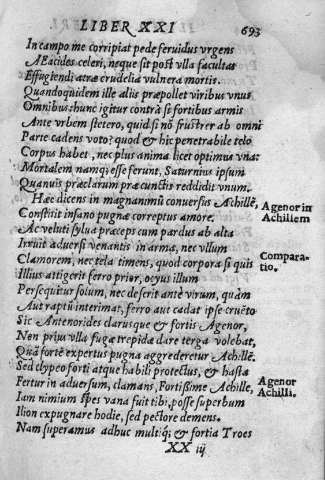 LIBER XXI 693
In campo me corripiat pede feruidus vrgens
AEacides celeri, neque sit post vlla facultas
Effugiendi atræ crudelia vulnera mortis.
Quandoquidem ille alijs præpollet viribus vnus
Omnibus: hunc igitur contrà si fortibus armis
Ante vrbem stetero, quid si nō frustrer ab omni
Parte cadens voto? quod & hic penetrabile telo
Corpus habet, nec plus anima licet optimus vna:
Mortalem namq; esse ferunt, Saturnius ipsum
Quanuis præclarum præ cunctis reddidit vnum.
Hæc dicens in magnanimū conuersus Achillē, Agenor in
Constitit insano pugnæ correptus amore, Achillem
Ac veluti sylua præceps cum pardus ab alta
Irruit aduersi venantis in arma, nec vllum
Clamorem, nec tela timens, quod corpora si quis Compara-
Illius attigerit ferro prior, ocyus illum tio.
Persequitur solum, nec deserit ante virum, quàm
Aut rapti interimat, ferro aut cadat ipse cruēto
Sic Antenorides clarusque & fortis Agenor,
Non prius vlla fugæ trepida dare terga volebat,
Quā fortē expertus pugna aggrederetur Achillē.
Sed clypeo forti atque habili protectus, & hasta
Fertur in aduersum, clamans, Fortissime Achille, Agenor
Iam nimium spes vana fuit tibi, posse superbum Achilli.
Ilion expugnare hodie, sed pectore demens.
Nam superamus adhuc multiq; & fortia Troes
XX iij